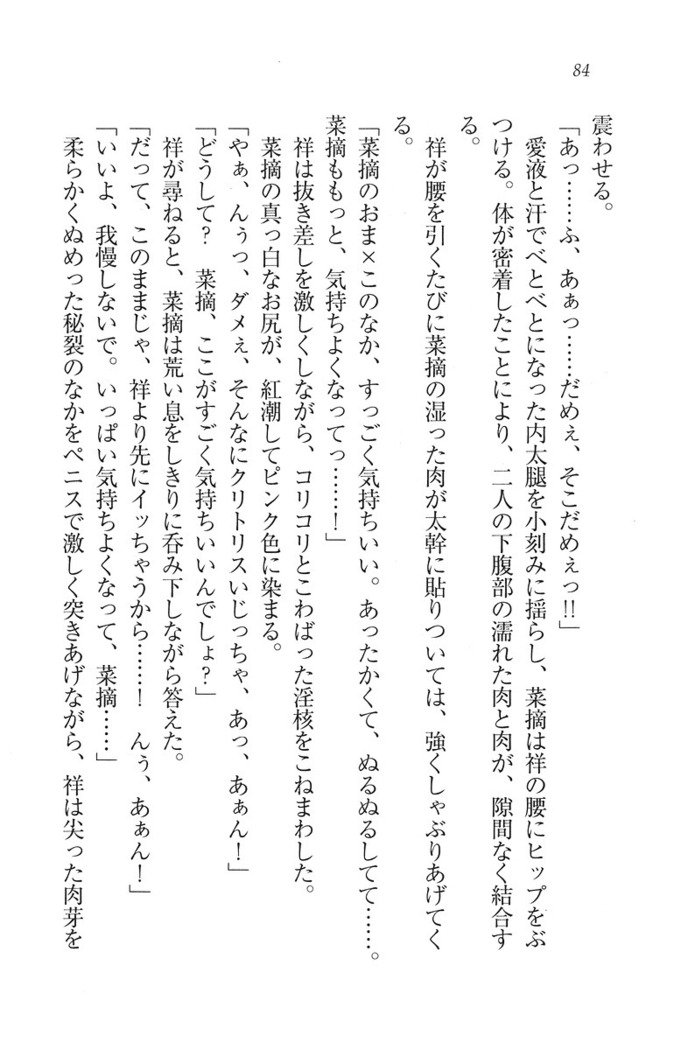 84
震わせる。
「あっ……ふ、あぁっ……だめぇ、そこだめぇっ!!」
愛液と汗でべとべとになった内太腿を小刻みに揺らし、菜摘は祥の腰にヒップをぶ
つける。体が密着したことにより、二人の下腹部の濡れた肉と肉が、隙間なく結合す
る。
祥が腰を引くたびに菜摘の湿った肉が太幹に貼りついては、強くしゃぶりあげてく
る。
「菜摘のおま×このなか、すっごく気持ちいい。あったかくて、ぬるぬるしてて……。
菜摘ももっと、気持ちよくなってっ……！」
祥は抜き差しを激しくしながら、コリコリとこわばった淫核をこねまわした。
菜摘の真っ白なお尻が、紅潮してピンク色に染まる。
「やぁ、んぅっ、ダメぇ、そんなにクリトリスいじっちゃ、あっ、あぁん！」
「どうして？　菜摘、ここがすごく気持ちいいんでしょ？」
祥が尋ねると、菜摘は荒い息をしきりに呑み下しながら答えた。
「だって、このままじゃ、祥より先にイッちゃうから……！　んぅ、あぁん！」
「いいよ、我慢しないで。いっぱい気持ちよくなって、菜摘……」
柔らかくぬめった秘裂のなかをペニスで激しく突きあげながら、祥は尖った肉芽を